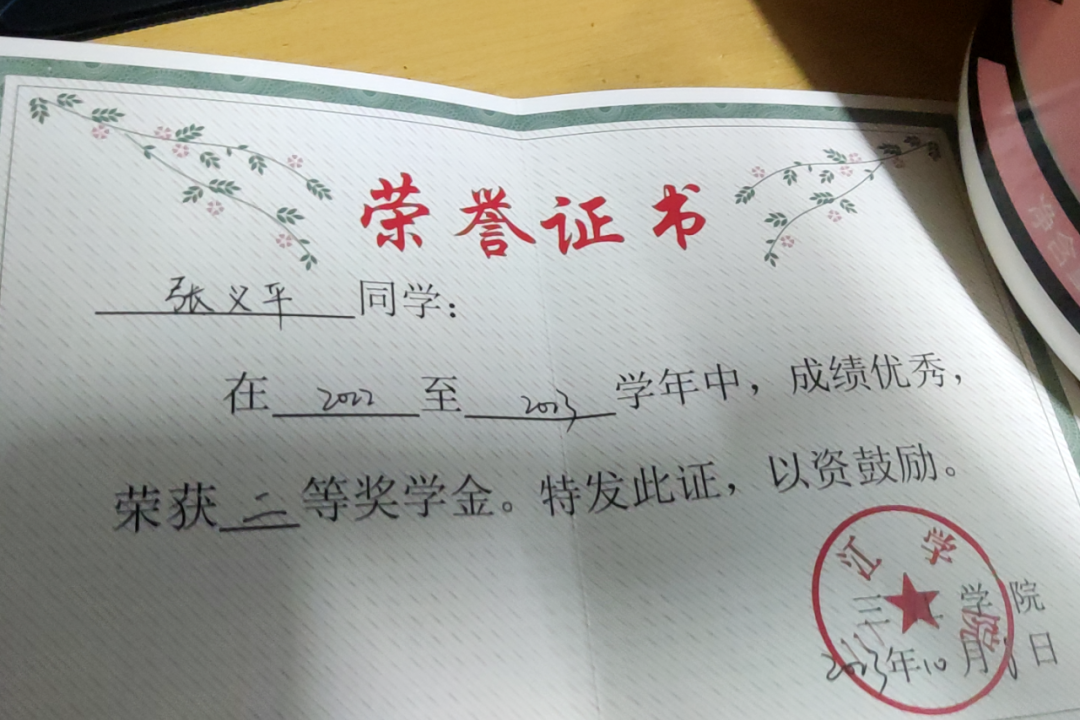 荣誉证书
张义平同学：
在2022至2023学年中，成绩优秀，
荣获二等奖学金。特发此证，以资鼓励。
三江学院
2023年10月日